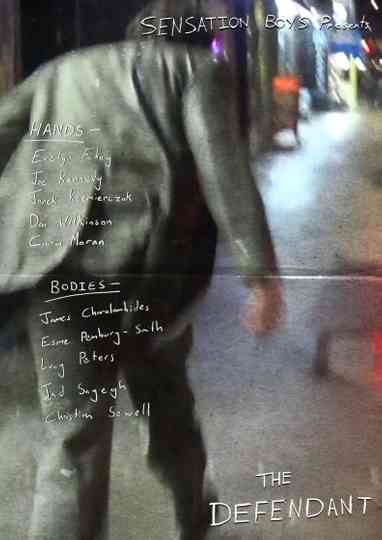 SENSATION BOYS Presents
HANDS —
Evelyn
Joe Kennedy
Jacek
Dan Wilkinson
Moran
BODIES —
James Charalambides
Esme Pembury-Smith
Lucy Peters
Jad Sayegh
Christian Sowell
THE
DEFENDANT